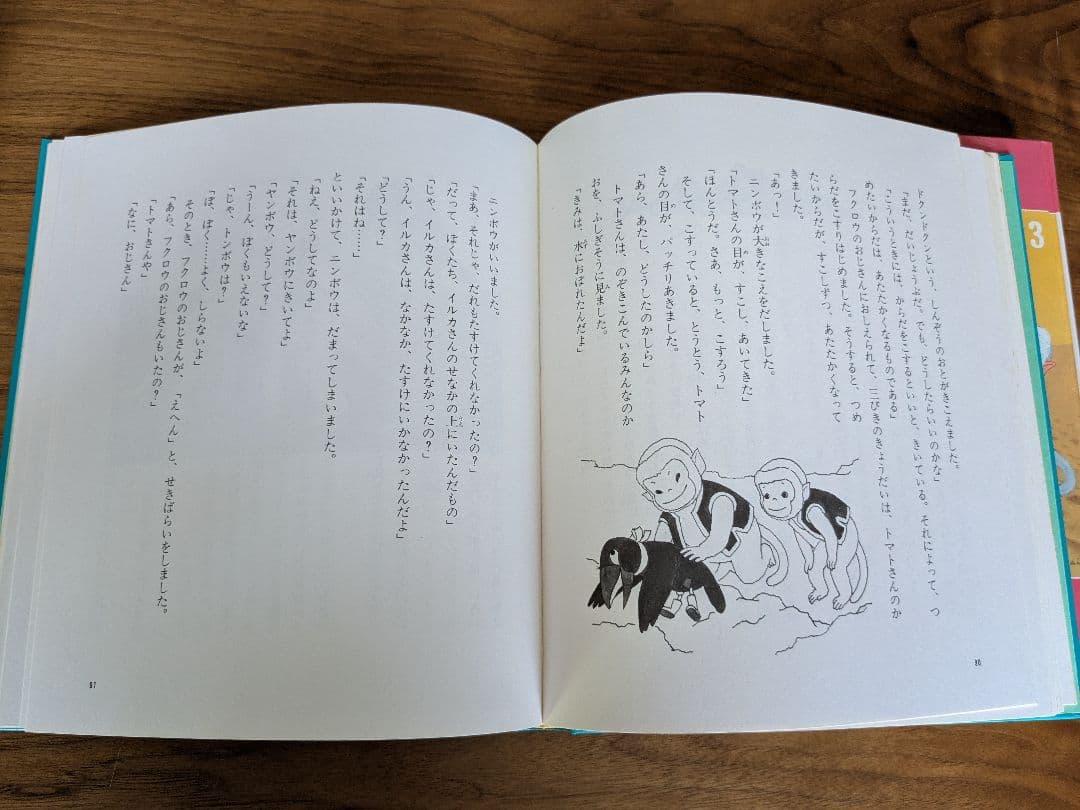 ドクンドクンという、しんぞうのおとがきこえました。
「まだ、だいじょうぶだ。でも、どうしたらいいのかな」
「こういうときには、からだをこするといいと、きいている。それによって、つ
めたいからだは、あたたかくなるものである」
フクロウのおじさんにおしえられて、三びきのきょうだいは、トマトさんのか
らだをこすりはじめました。そうすると、つめ
たいからだが、すこしずつ、あたたかくなって
きました。
「あっ!」
ニンボウが大きなこえをだしました。
「トマトさんの目が、すこし、あいてきた」
「ほんとうだ。さあ、もっと、こすろう」
そして、こすっていると、とうとう、トマト
さんの目が、パッチリあきました。
「あら、あたし、どうしたのかしら」
トマトさんは、のぞきこんでいるみんなのか
おを、ふしぎそうに見ました。
「きみは、水におぼれたんだよ」
80
ニンボウがいいました。
「まあ、それじゃ、だれもたすけてくれなかったの?」
「だって、ぼくたち、イルカさんのせなかの上にいたんだもの」
「じゃ、イルカさんは、たすけてくれなかったの?」
「うん、イルカさんは、なかなか、たすけにいかなかったんだよ」
「どうして?」
「それはね……」
といいかけて、ニンボウは、だまってしまいました。
「ねえ、どうしてなのよ」
「それは、ヤンボウにきいてよ」
「ヤンボウ、どうして?」
「うーん、ぼくもいえないな」
「じゃ、トンボウは?」
「ぼ、ぼく……よく、しらないよ」
そのとき、フクロウのおじさんが、「えへん」と、せきばらいをしました。
「あら、フクロウのおじさんもいたの?」
「トマトさんや」
「なに、おじさん」
81
3